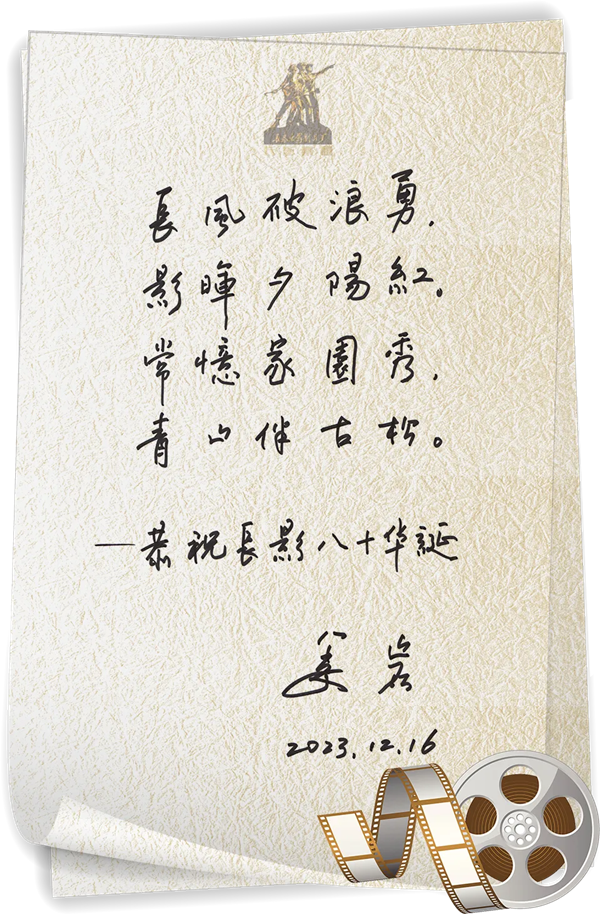 長風破浪勇，
影暉夕陽紅。
常憶家園秀，
青山伴古松。
—恭祝長影八十华誕
姜岩
2023.12.16